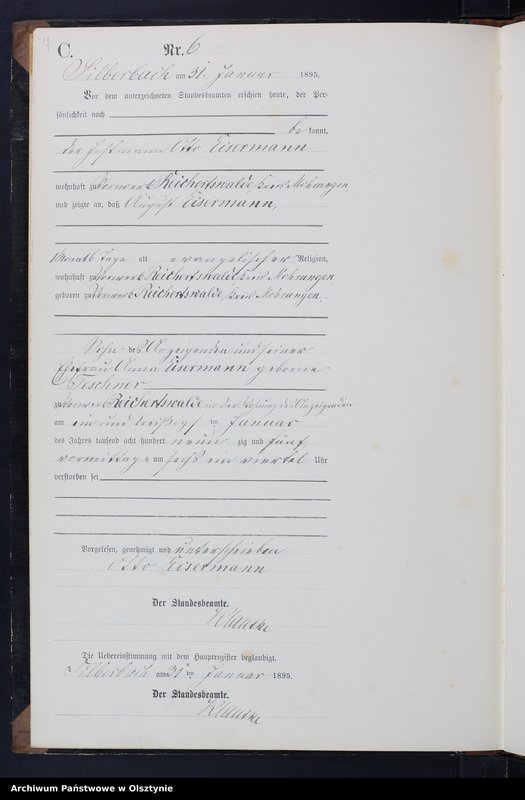 C.
Nr. 6
Silberbach am 31. Januar 1895.
Vor dem unterzeichneten Standesbeamten erschien heute, der Per-
sönlichkeit nach
be kannt,
der Instmann Otto Eisermann
wohnhaft zu Vorwerk Reichertswalde Kreis Mohrungen
und zeigte an, daß August Eisermann,
Monat Tage alt evangelischer Religion,
wohnhaft zu Vorwerk Reichertswalde Kreis Mohrungen,
geboren zu Vorwerk Reichertswalde, Kreis Mohrungen,
Sohn des Anzeigenden und seiner
Ehefrau Anna Eisermann geborene
Teschner
zu Vorwerk Reichertswalde in der Wohnung des Anzeigenden
am ein und dreißigsten Januar
des Jahres tausend acht hundert neun zig und fünf
vormittags um sechs ein viertel Uhr
verstorben sei
Vorgelesen, genehmigt und unterschrieben
Otto Eisermann
Der Standesbeamte.
Die Uebereinstimmung mit dem Hauptregister beglaubigt.
Silberbach am 31ten Januar 1895.
Der Standesbeamte.
Archiwum Państwowe w Olsztynie